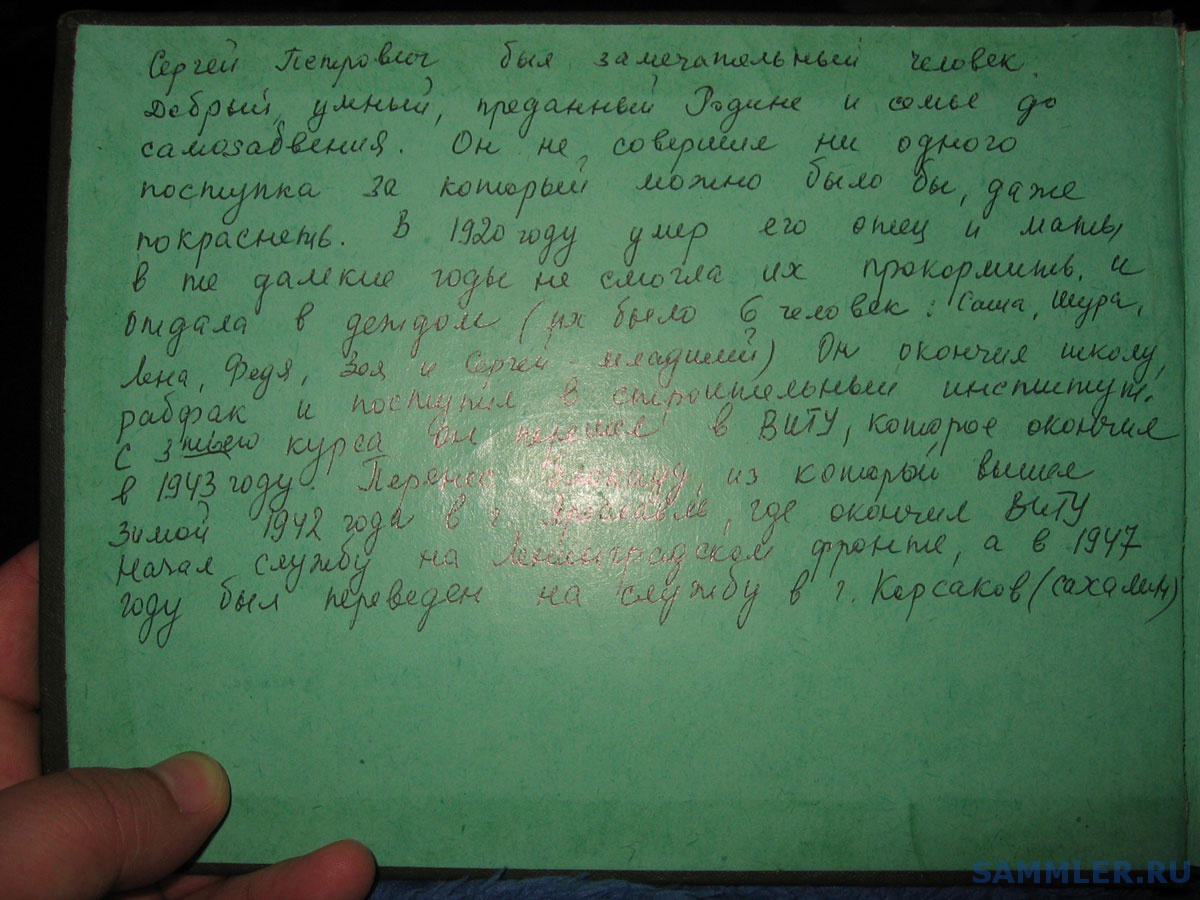 Сергей Петрович был замечательный человек.
Добрый, умный, преданный Родине и семье до
самозабвения. Он не совершил ни одного
поступка за который можно было бы, даже
покраснеть. В 1920 году умер его отец и мать
в те далекие годы не смогла их прокормить и
отдала в детдом (их было 6 человек: Саша, Шура,
Лена, Федя, Зоя и Сергей - младший) Он окончил школу,
рабфак и поступил в строительный институт.
С 3тьего курса он перешел в ВИТУ, которое окончил
в 1943 году. Перенес блокаду, из которой вышел
зимой 1942 года в г. Ярославль, где окончил ВИТУ
Начал службу на Ленинградском фронте, а в 1947
году был переведен на службу в г. Корсаков (сахалин)
SAMMLER.RU